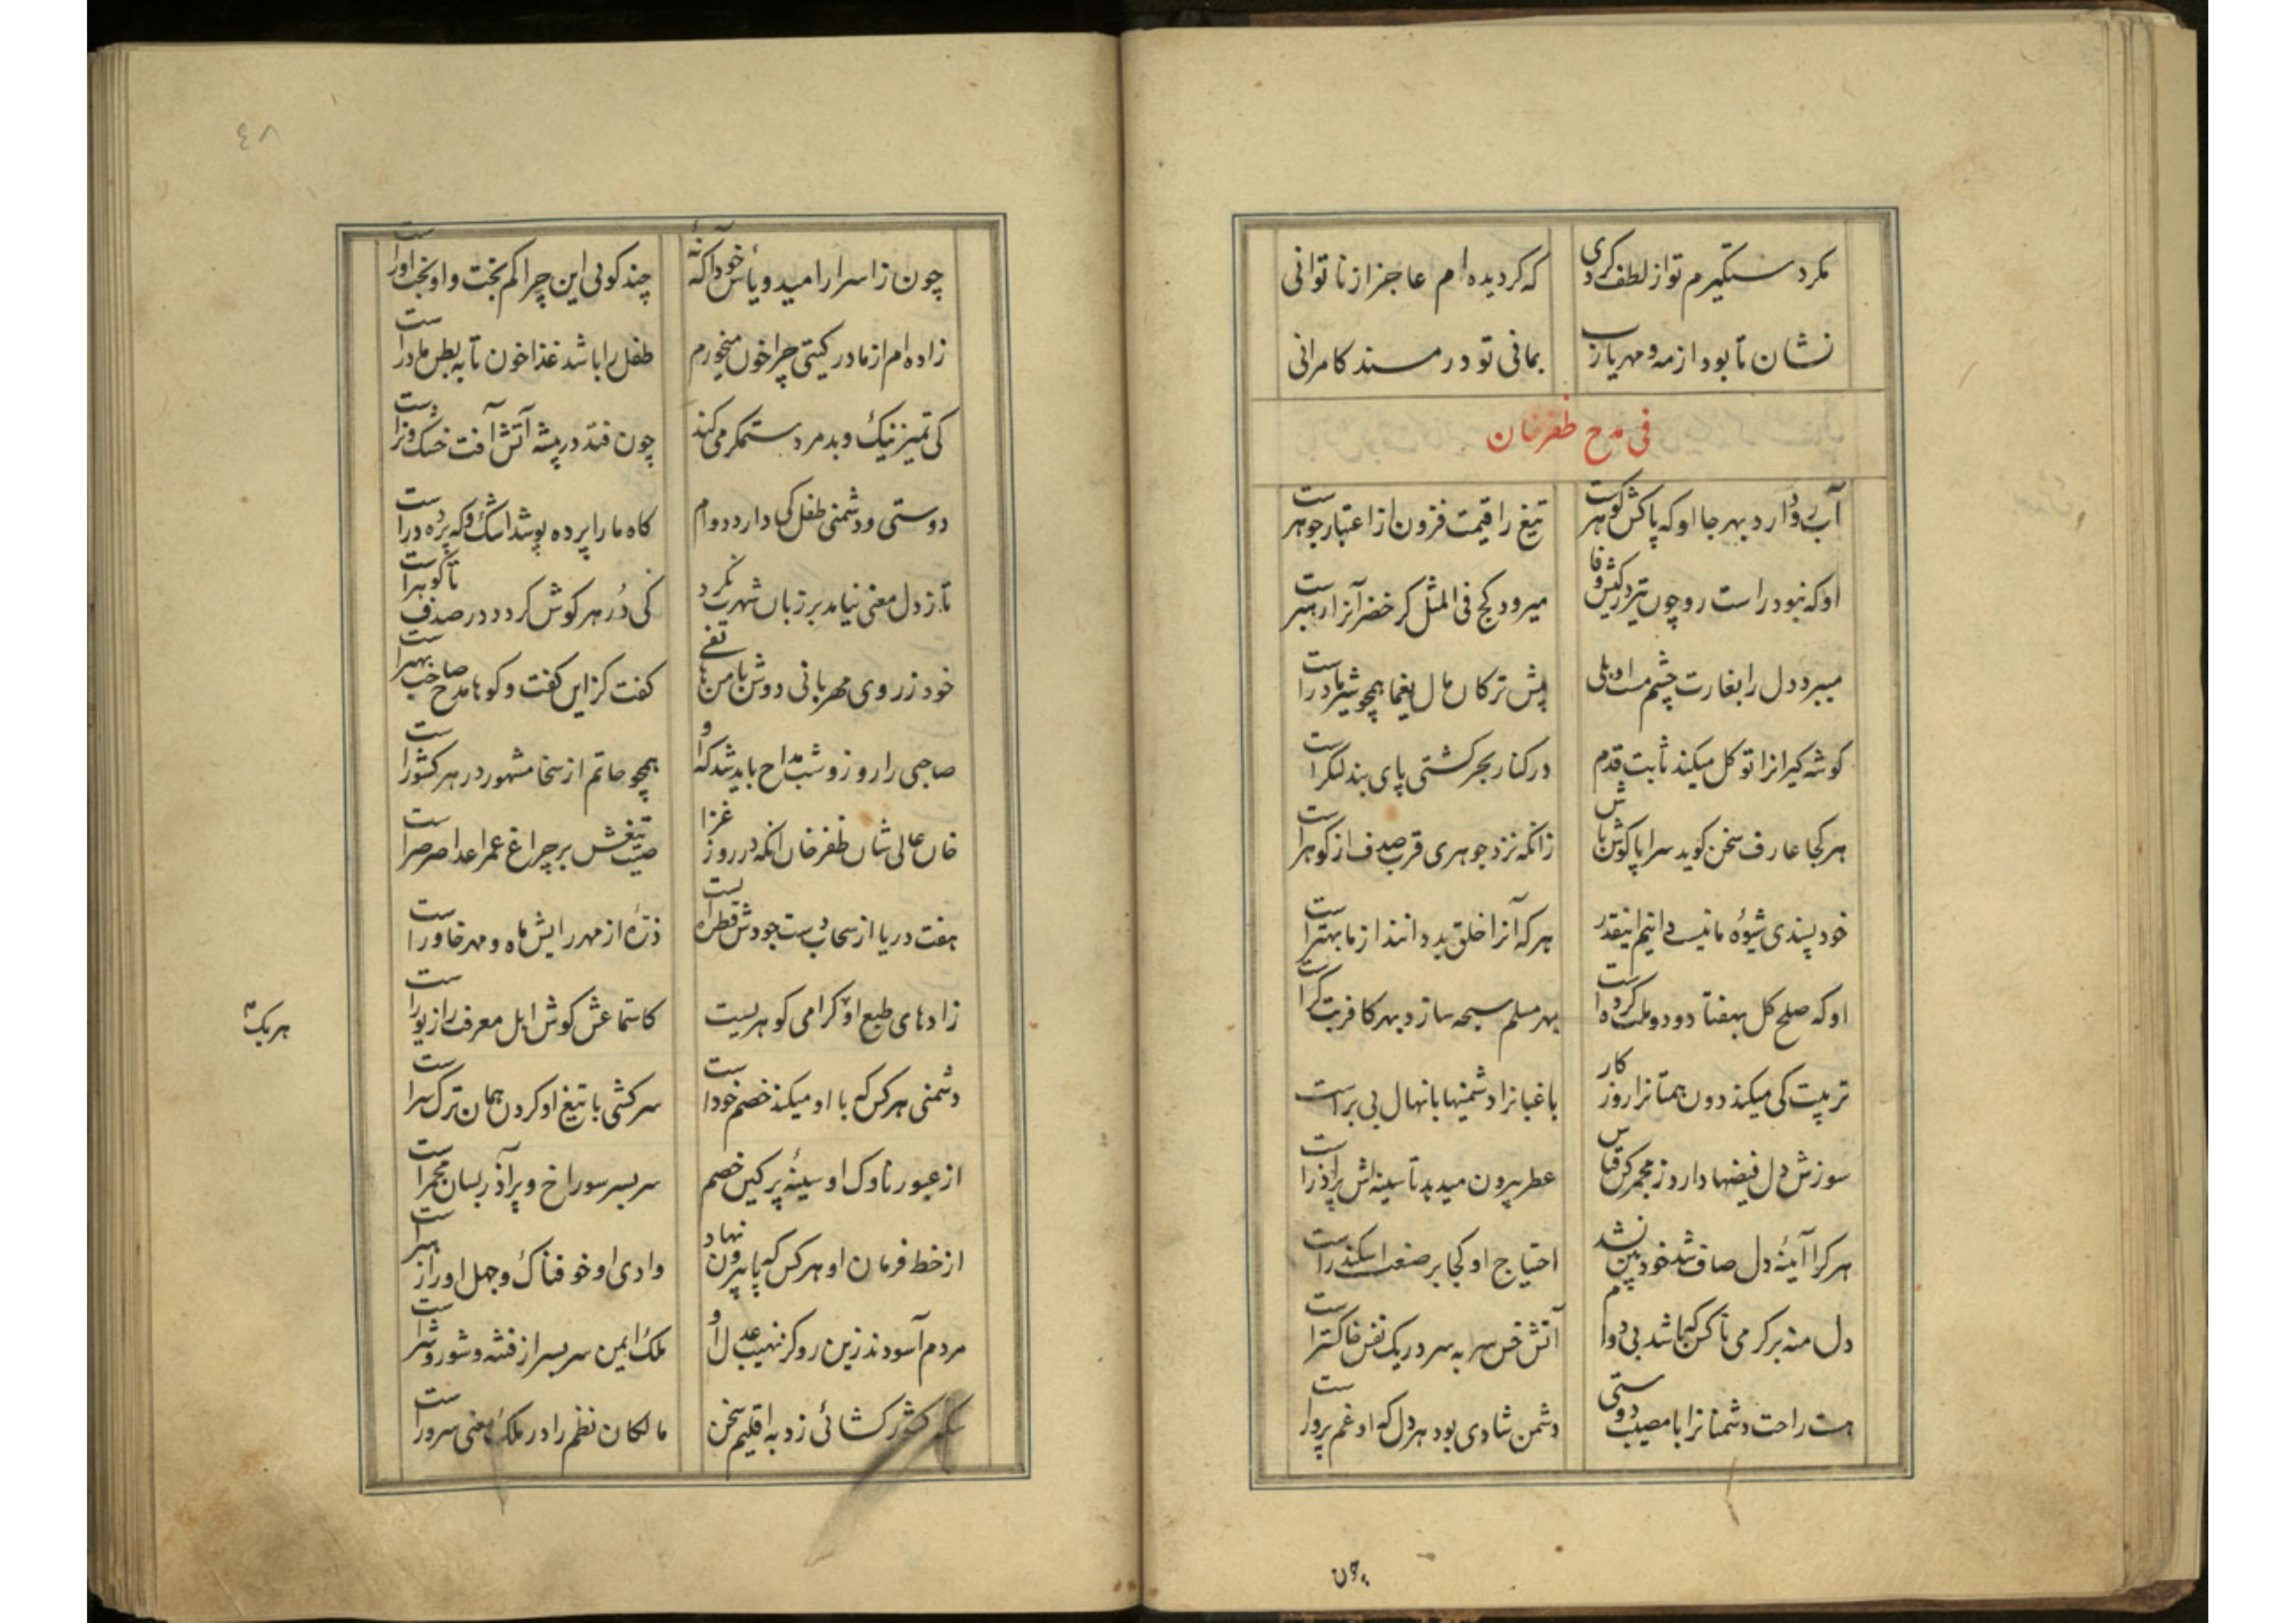 مکر دستگیرم تو از لطف کردی
که گردیده ام عاجز از ناتوانی
نشان تا بود از مه و مهر یارب
بمانی تو در مسند کامرانی
فی مدح ظفرخان
آب رو دارد بهر جا او که پاکش گوهرست
تیغ را قیمت فزون از اعتبار جوهرست
او که نبود راست رو چون تیر در کیش وفا
میرود کج فی المثل گر خضر آنرا رهبرست
میبرد دل را بغارت چشم مست او بلی
پیش ترکان مال یغما همچو شیر مادرست
گوشه گیرانرا توکل میکند ثابت قدم
در کنار بحر کشتی پای بند لنگرست
هر کجا عارف سخن گوید سراپا گوش باش
زانکه نزد جوهری قرب صدف از گوهرست
خود پسندی شیوه ما نیست دانیم اینقدر
هر که آنرا خلق بد دانند از ما بهترست
او که صلح کل بهفتاد و دو ملت کرده است
بهر مسلم سبحه ساز و بهر کافر بتگرست
تربیت کی میکند دون همتانرا روزکار
باغبانرا دشمنیها با نهال بی برست
سوزش دل فیضها دارد ز مجمر کن قیاس
عطر بیرون میدهد تا سینه اش پر آذرست
هر کرا آیینه دل صاف شد خود بین نشد
احتیاج او کجا بر صنعت اسکندرست
دل منه بر گرمی ناکس که باشد بی دوام
آتش خس سر به سر در یک نفس خاکسترست
هست راحت دشمنانرا با مصیبت دوستی
دشمن شادی بود هر دل که او غم پرورست
چون
٤٨
چون ز اسرار امید و یأس خود آگه نه
چند گوئی این چرا کم بخت و او بخت آورست
زاده ام از مادر گیتی چرا خون میخورم
طفل را باشد غذا خون تا به بطن مادرست
کی تمیز نیک و بد مرد ستمگر می کند
چون فتد در بیشه آتش آفت خشک و ترست
دوستی و دشمنی طفل کی دارد دوام
گاه ما را پرده پوشد اشک و گه پرده درست
تا ز دل معنی نیامد بر زبان شهرت نکرد
کی دُر هر گوش گردد در صدف تا گوهرست
خود ز روی مهربانی دوش با من هاتفی
گفت کز این گفت و گوها مدح صاحب بهترست
صاحبی را روز و شب مداح باید شد که او
همچو حاتم از سخا مشهور در هر کشورست
خان عالی شان ظفرخان آنکه در روز غزا
صیت تیغش بر چراغ عمر اعدا صرصرست
هفت دریا از سحاب دست جودش قطره ایست
ذرّه از مهر رایش ماه و مهر خاورست
زادهای طبع او گرامی گوهریست
کاستماعش گوش اهل معرفت را زیورست
هریک
دشمنی هر کس که با او میکند خصم خودست
سرکشی با تیغ او کردن همان ترک سرست
از عبور ناوک او سینهٔ پر کین خصم
سربسر سوراخ و پر آذر بسان مجمرست
از خط فرمان او هر کس که پا بیرون نهاد
وادی او خوفناک و جهل او را رهبرست
مردم آسودند زین رو کز نهیب عدل او
ملک ایمن سربسر از فتنه و شور و شرست
کشور کشائی زد به اقلیم سخن
مالکان نظم را در ملک معنی سرورست